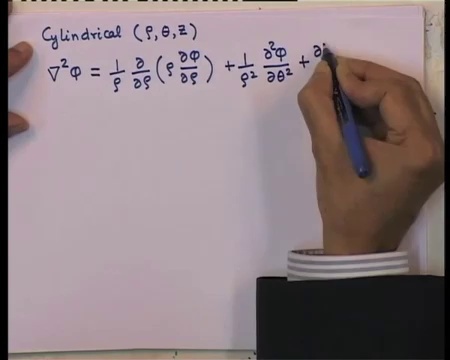 Cylindrical (ρ, θ, z)
∇²φ = 1/ρ ∂/∂ρ (ρ ∂φ/∂ρ) + 1/ρ² ∂²φ/∂θ² + ∂